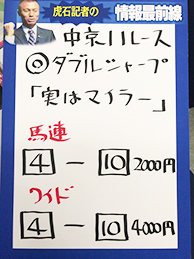 虎石記者の
情報最前線
中京11レース
◎ダブルシャープ
「実はマイラー」
馬連
4 － 10 2000円
ワイド
4 － 10 4000円